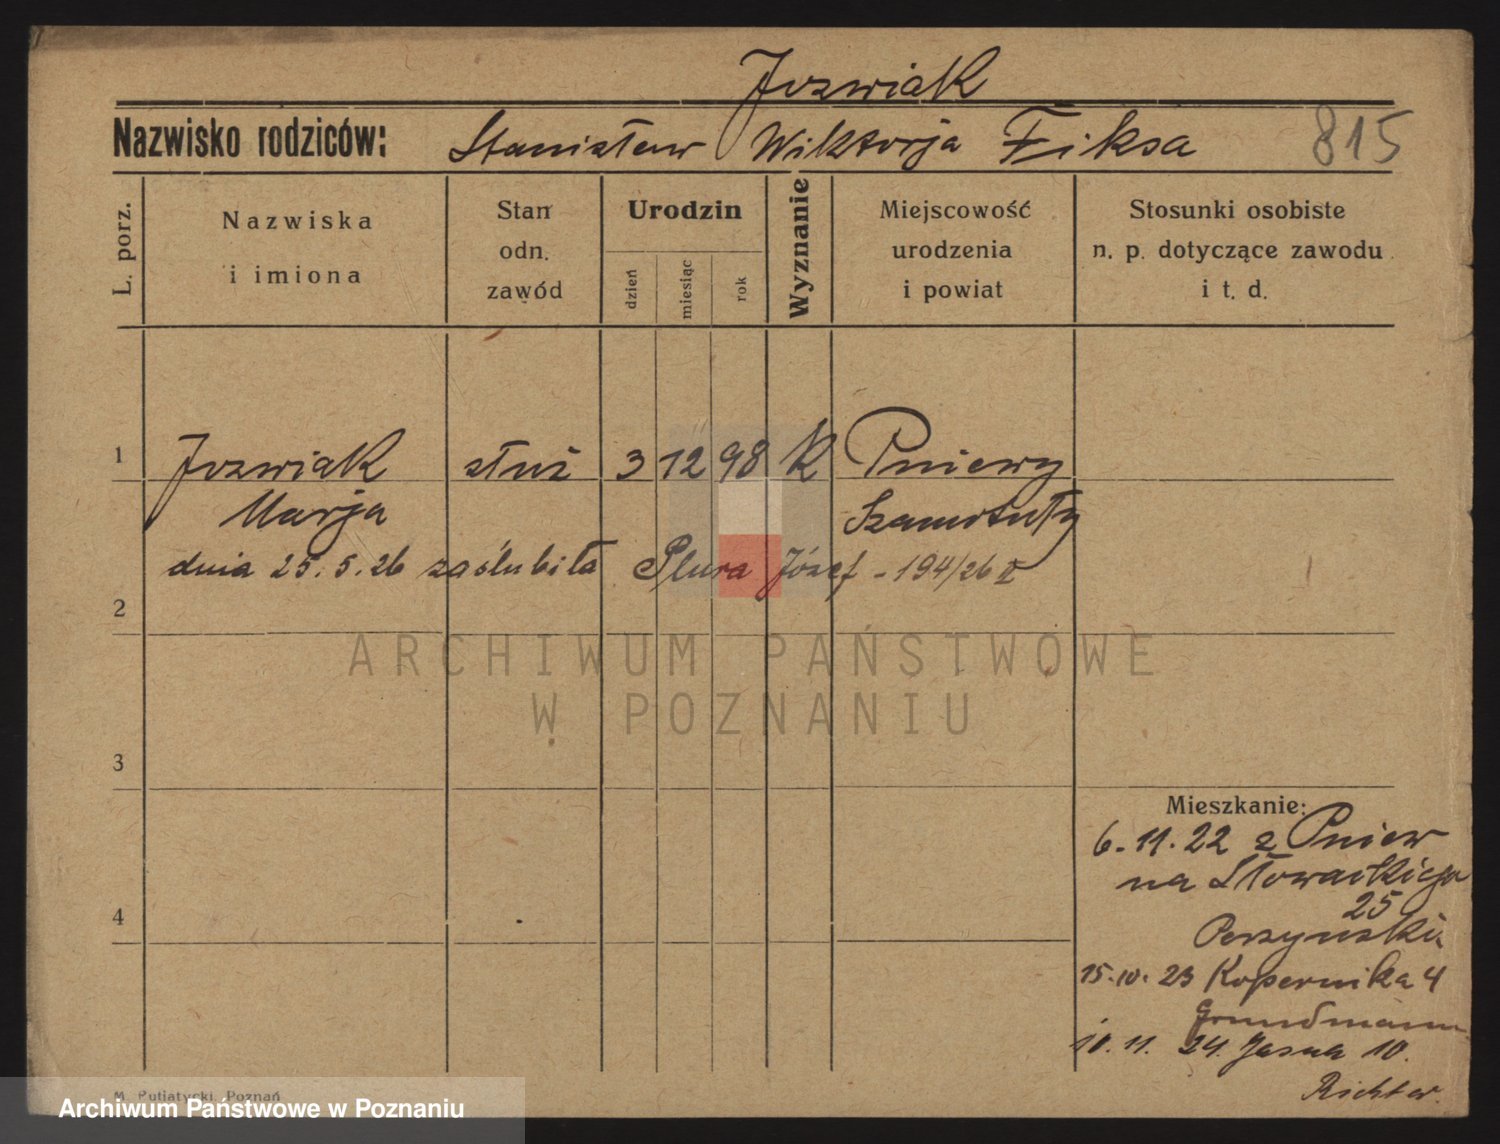 Jozwiak
Nazwisko rodziców: Stanisław Wiktorja Fiksa 815
L. porz.
Nazwiska
i imiona
Stan
odn.
zawód
Urodzin
dzień
miesiąc
rok
Wyznanie
Miejscowość
urodzenia
i powiat
Stosunki osobiste
n. p. dotyczące zawodu
i t. d.
1 Jozwiak służ 3 12 98 K Pniewy
Marja Szamotuły
dnia 25.5.26 zaślubiła Plura Józef - 194/26 II
2
ARCHIWUM PAŃSTWOWE
W POZNANIU
3
Mieszkanie:
6.11.22 z Pniew
na Słowackiego
25
4
Perzyński
15.10.23 Kopernika 4
Grundmann
10.11.24. Jasna 10.
Richter.
M. Putiatycki, Poznań
Archiwum Państwowe w Poznaniu